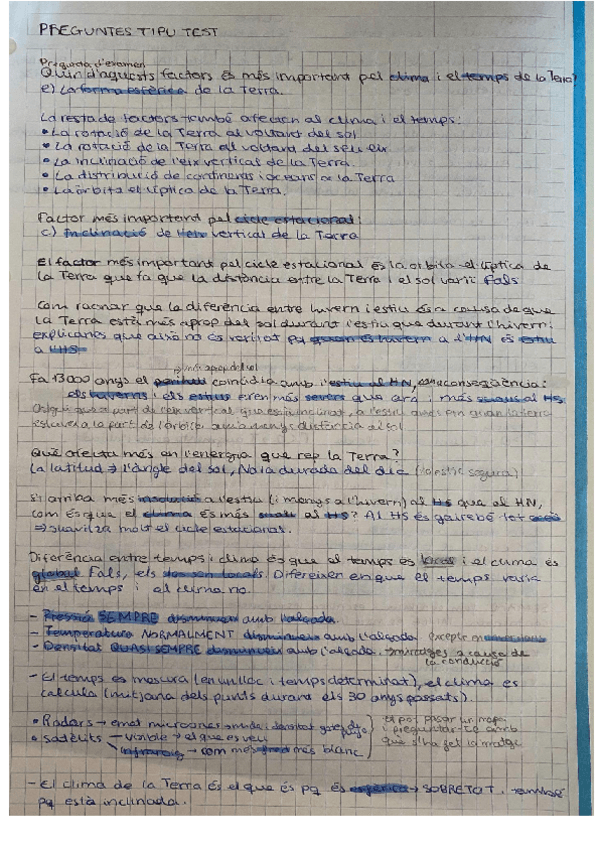 PREGUNTES TIPU TEST
Pregunta d'examen
Quin d'aquests factors és més important pel clima i el temps de la Terra?
e) La forma esfèrica de la Terra.
La resta de factors també afecten al clima i el temps:
• La rotació de la Terra al voltant del sol
• La rotació de la Terra al voltant del seu eix
• La inclinació de l'eix vertical de la Terra.
• La distribució de continents i oceans de la Terra
• La òrbita el·líptica de la Terra.
Factor més important pel cicle estacional:
c) Inclinació de l'eix vertical de la Terra
El factor més important pel cicle estacional és la orbita el·líptica de
la Terra que fa que la distància entre la Terra i el sol varii Fals
Com raonar que la diferència entre hivern i estiu és a causa de que
la Terra està més aprop del sol durant l'estiu que durant l'hivern:
explicant que això no és veritat pq quan és hivern a l'HN és estiu
a l'HS
Fa 13000 anys el periheli coincidia amb l'estiu al HN, com a conseqüència:
els hiverns i els estius eren més severs que ara i més suaus al HS
Què afecta més en l'energia que rep la Terra?
La latitud → l'angle del sol, No la durada del dia (no estic segura)
Si arriba més insolació a l'estiu (i menys a l'hivern) al HS que al HN,
com és que el clima és més suau al HS? Al HS és gairebé tot oceà
⇒ suavitza molt el cicle estacional.
Diferència entre temps i clima és que el temps és local i el clima és
global Fals, els dos són locals. Difereixen en que el temps varia
en el temps i el clima no.
- Pressió SEMPRE disminueix amb l'alçada.
- Temperatura NORMALMENT disminueix amb l'alçada excepte en
- Densitat QUASI SEMPRE disminueix amb l'alçada. miratges a causa de
la conducció
- El temps es mesura (en un lloc i temps determinat), el clima es
calcula (mitjana dels punts durant els 30 anys passats).
• Radars → emet microones
et pot posar un mapa
• Satèl·lits → visible → el que es veu
i preguntar-te amb
infraroig → com més fred més blanc
que s'ha fet la imatge
- El clima de la Terra és el que és pq és esfèrica → SOBRETOT. també
pq està inclinada.